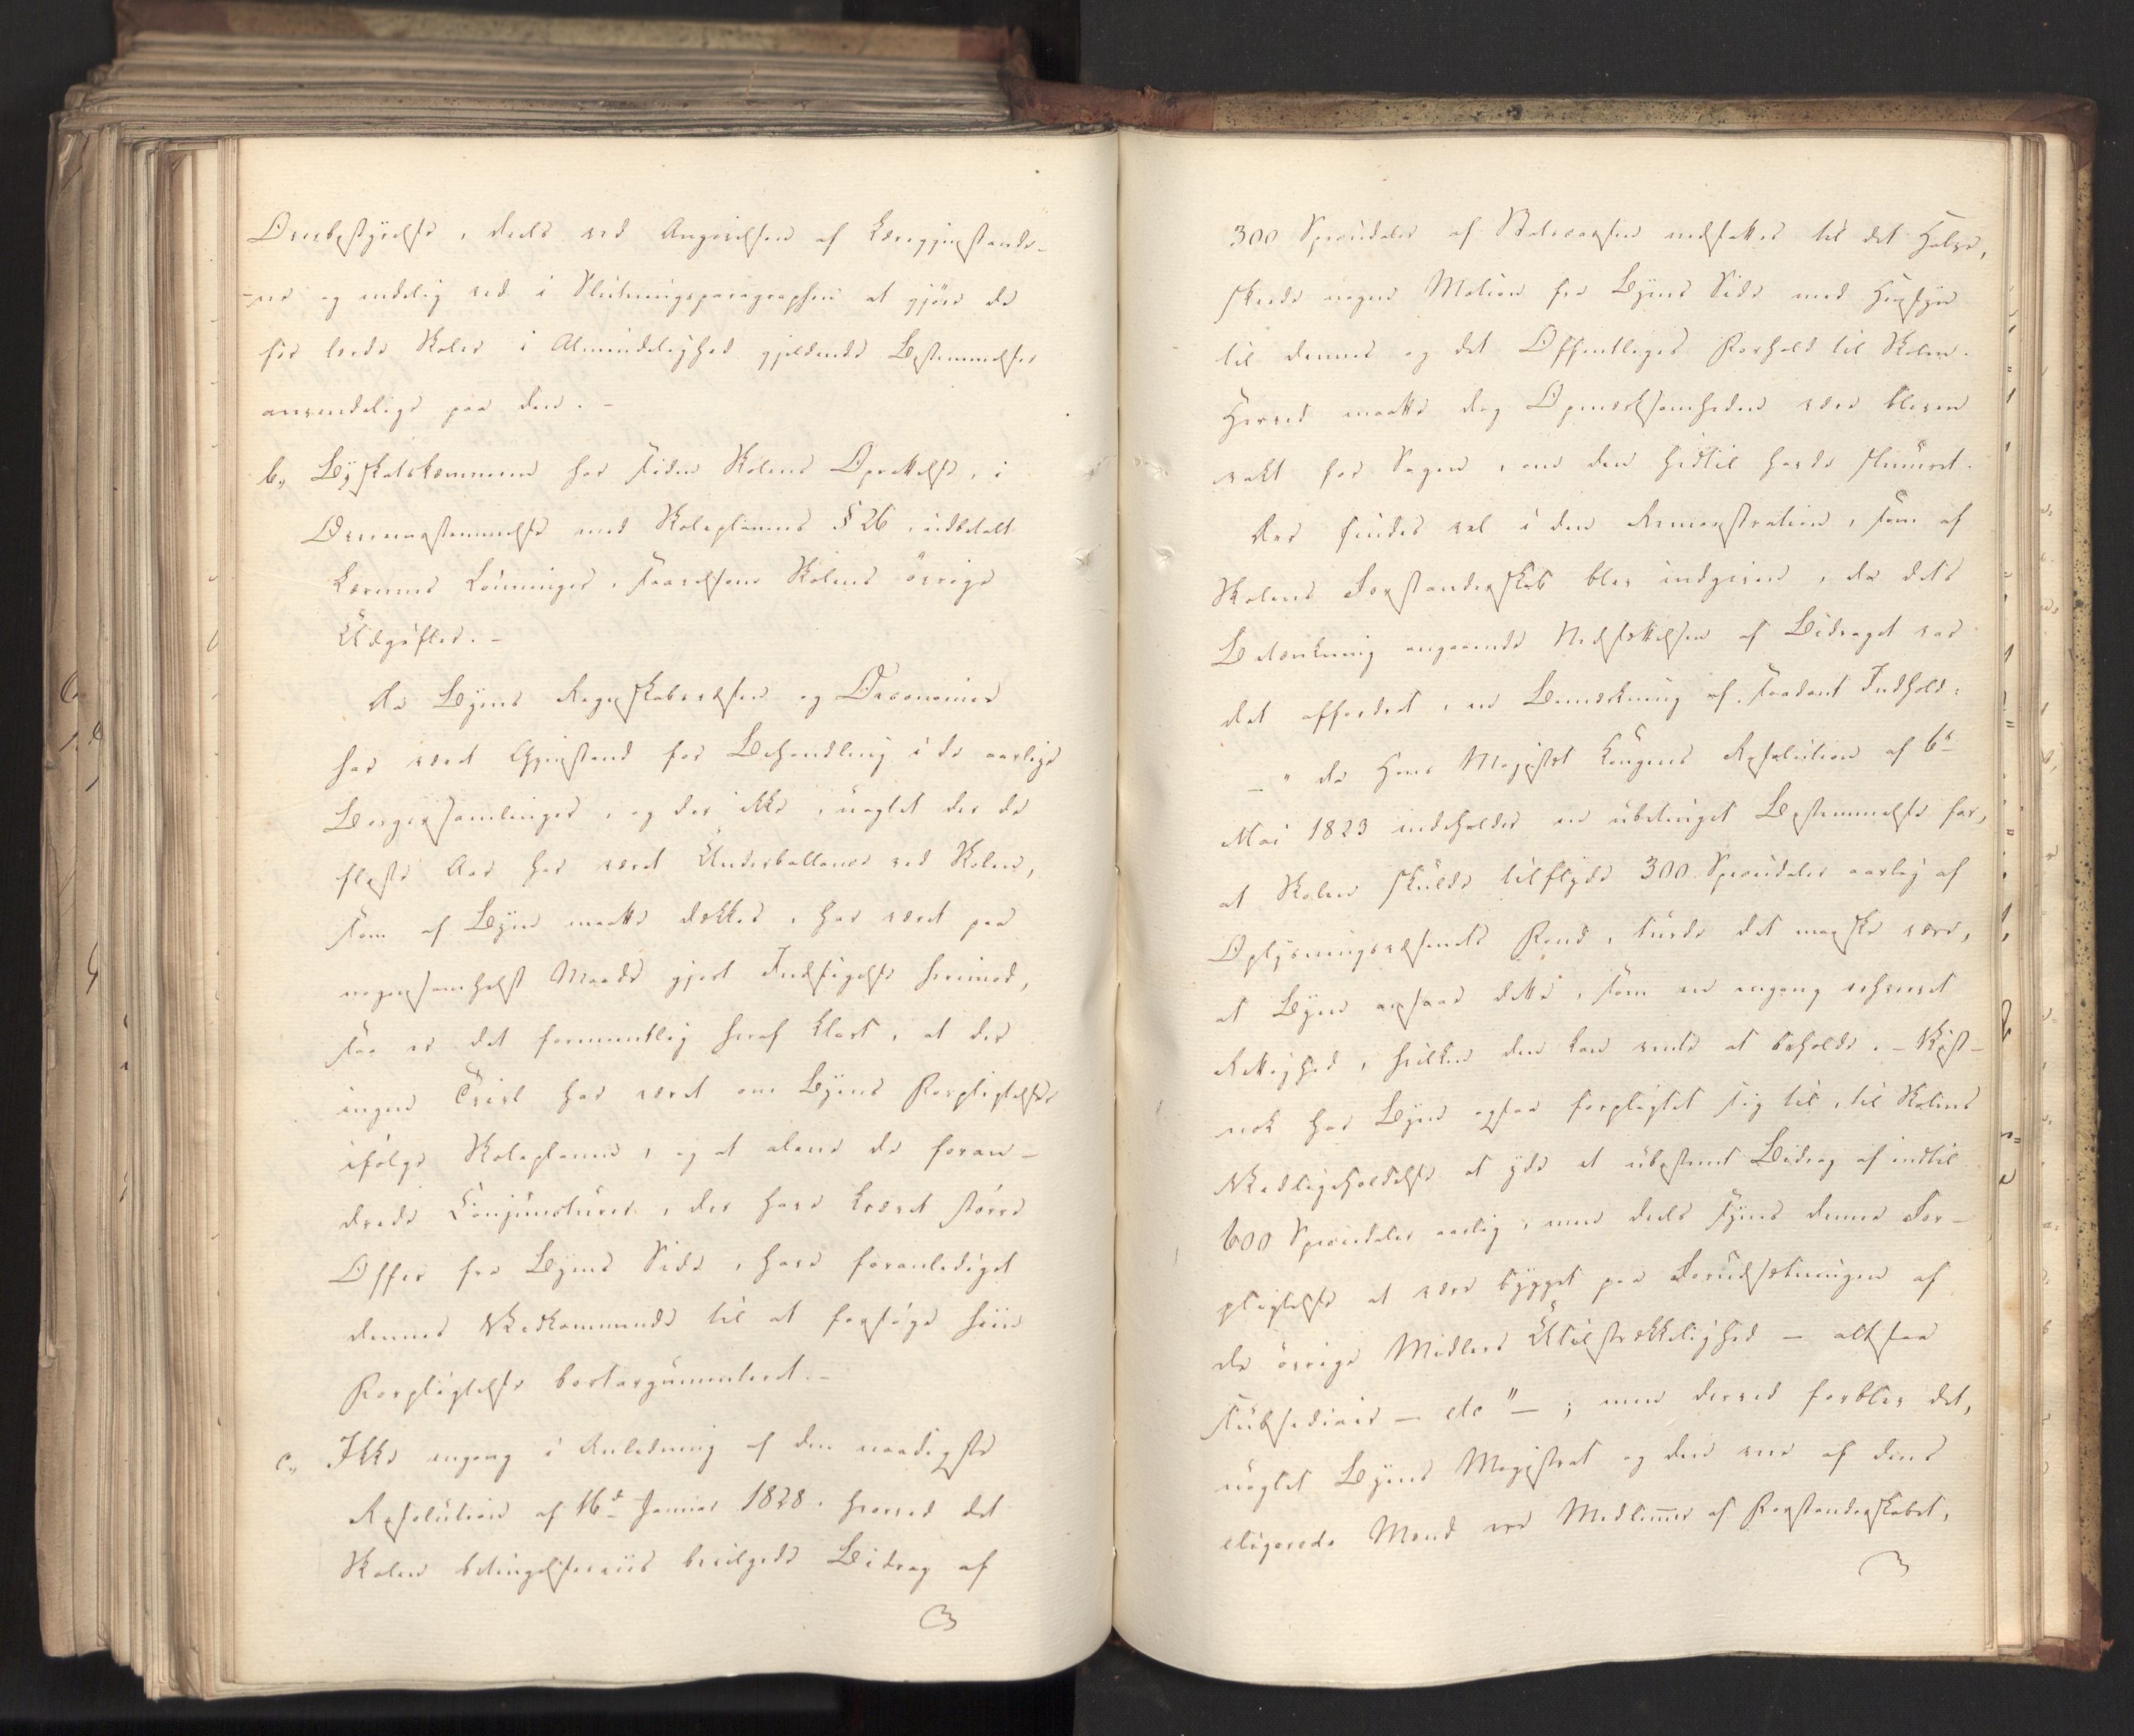 Overbestyrelse, deels ved Angivelsen af Læregjenstande-
-ne og endelig ved i Slutningsparagraphen at gjöre de
for lærde Skoler i Almindelighed gjeldende Bestemmelser
anvendelige paa den. -
b, Byskatskæmneren har siden Skolens Oprettelse, i
Overeensstemmelse med Skoleplanens § 26, udbetalt
Lærernes Lönninger, saavelsom Skolens övrige
Udgifter. -
Da Byens Regnskabsvæsen og Oeconomie
har været Gjenstand for Behandling i de aarlige
Borgersamlinger, og der ikke, uagtet der de
fleste Aar har været Underballance ved Skolen,
som af Byen maatte dækkes, har været paa
nogensomhelst Maade gjort Indsigelse herimod,
saa er det formeentlig heraf klart, at der
ingen Tvivl har været om Byens Forpligtelse
ifölge Skoleplanen, og at alene de foran-
drede Conjuncturer, der have krævet större
Offer fra Byens Side, have foranlediget
dennes Vedkommende til at forsöge hiin
Forpligtelse bortargumenteret. -
c, Ikke engang i Anledning af den naadigste
Resolution af 16d Januar 1828, hvorved det
Skolen betingelsesviis bevilgede Bidrag af
300 Speciedaler af Statscassen nedsattes til det Halve,
skeede nogen Motion fra Byens Side med Hensyn
til dennes og det Offentliges Forhold til Skolen.
Herved maatte dog Opmærksomheden være bleven
vakt for Sagen, om den hidtil havde slumret.
Der findes vel i den Remonstration, som af
Skolens Forstanderskab blev indgiven, da dets
Betænkning angaaende Nedsættelsen af Bidraget var
det affordret, en Bemærkning af saadant Indhold:
- " da Hans Majestæt Kongens Resolution af 6te
Mai 1823 indeholder en ubetinget Bestemmelse for,
at Skolen skulde tilflyde 300 Speciedaler aarlig af
Oplysningsvæsenets Fond, turde det maaske være,
at Byen ansaae dette, som en engang erhvervet
Rettighed, hvilken den kan vente at beholde. - Vist-
nok har Byen ogsaa forpligtet sig til, til Skolens
Vedligeholdelse at yde et ubestemt Bidrag af indtil
600 Speciedaler aarlig, men deels synes denne For-
pligtelse at være bygget paa Forudsætningen af
de övrige Midlers Utilstrækkelighed - altsaa
subsidiair - etc " - ; men derved forblev det,
uagtet Byens Magistrat og den ene af dens
eligerede Mænd ere Medlemmer af Forstanderskabet,